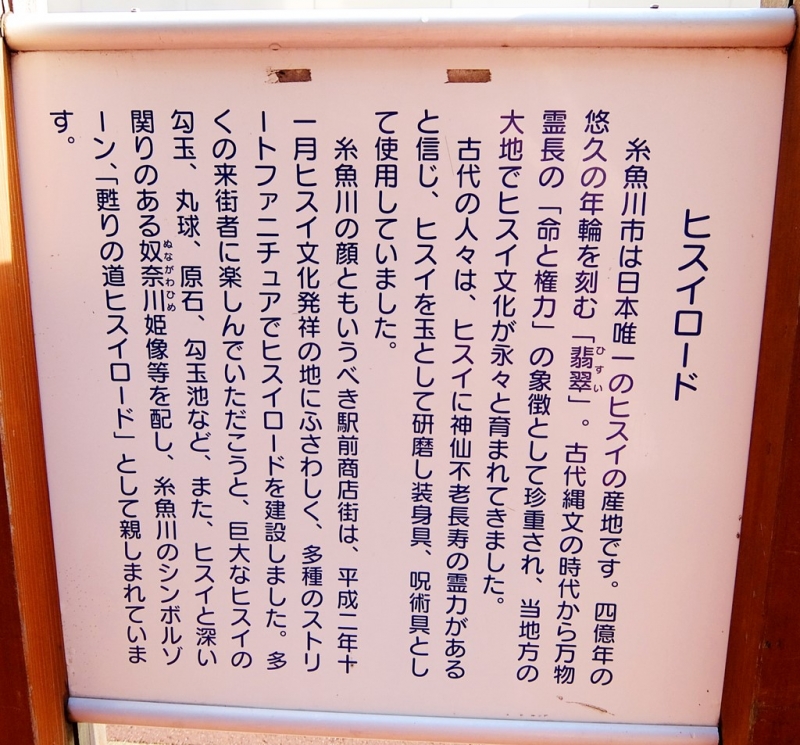 ヒスイロード
糸魚川市は日本唯一のヒスイの産地です。四億年の
悠久の年輪を刻む「翡翠」。古代縄文の時代から万物
ひすい
霊長の「命と権力」の象徴として珍重され、当地方の
大地でヒスイ文化が永々と育まれてきました。
古代の人々は、ヒスイに神仙不老長寿の霊力がある
と信じ、ヒスイを玉として研磨し装身具、呪術具とし
て使用していました。
糸魚川の顔ともいうべき駅前商店街は、平成二年十
一月ヒスイ文化発祥の地にふさわしく、多種のストリ
ートファニチュアでヒスイロードを建設しました。多
くの来街者に楽しんでいただこうと、巨大なヒスイの
勾玉、丸球、原石、勾玉池など、また、ヒスイと深い
関りのある奴奈川姫像等を配し、糸魚川のシンボルゾ
ぬながわひめ
ーン、「甦りの道ヒスイロード」として親しまれていま
す。